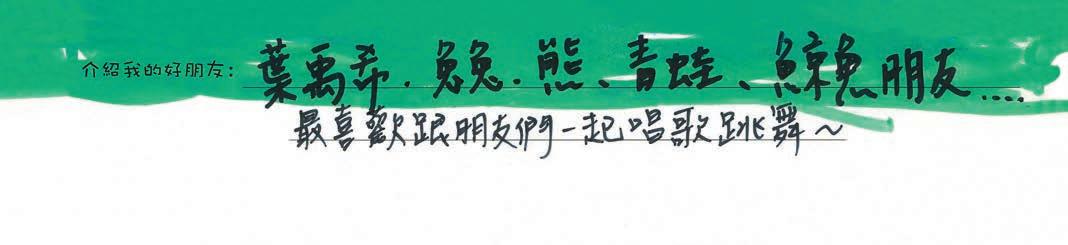 介紹我的好朋友：葉禹希．兔兔．熊、青蛙、鯨魚朋友....
最喜歡跟朋友們一起唱歌跳舞～